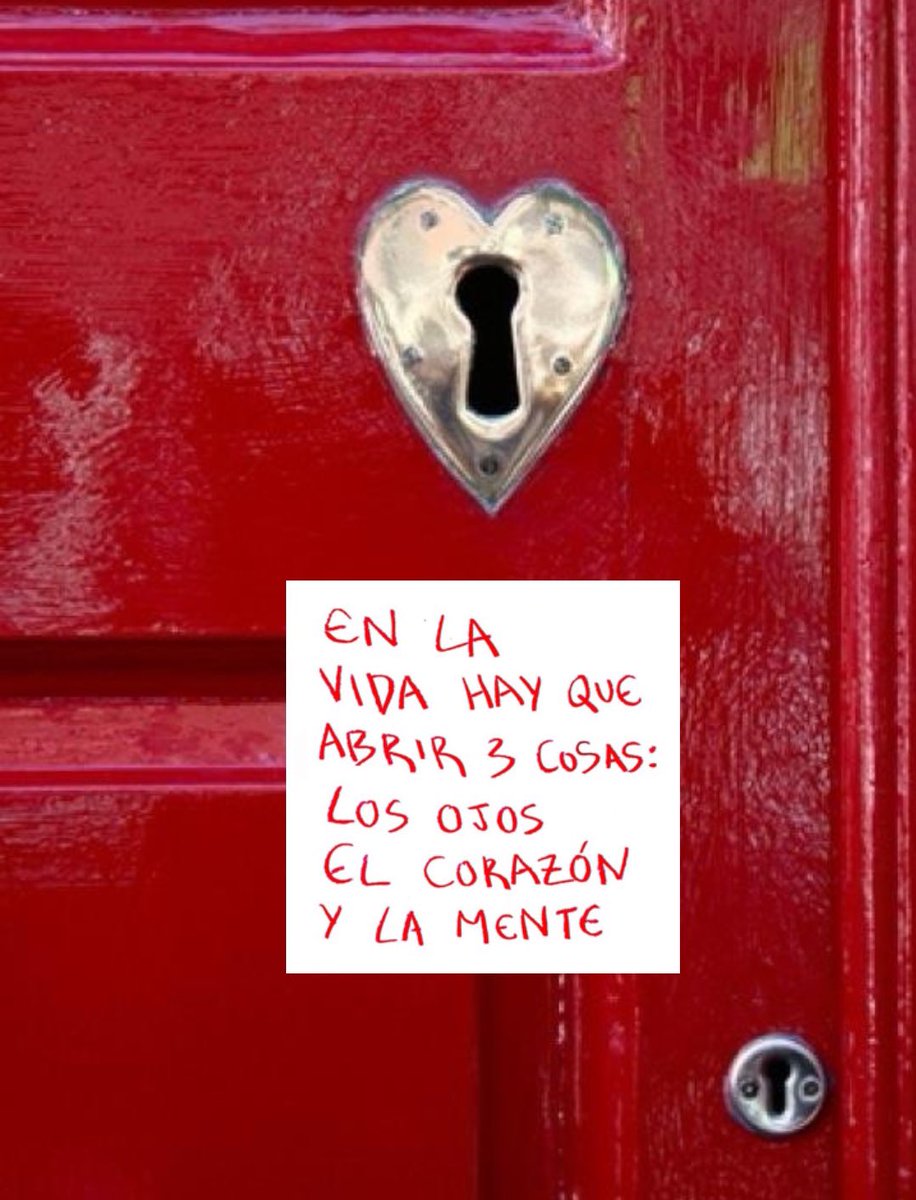 EN LA
VIDA HAY QUE
ABRIR 3 COSAS:
LOS OJOS
EL CORAZÓN
Y LA MENTE